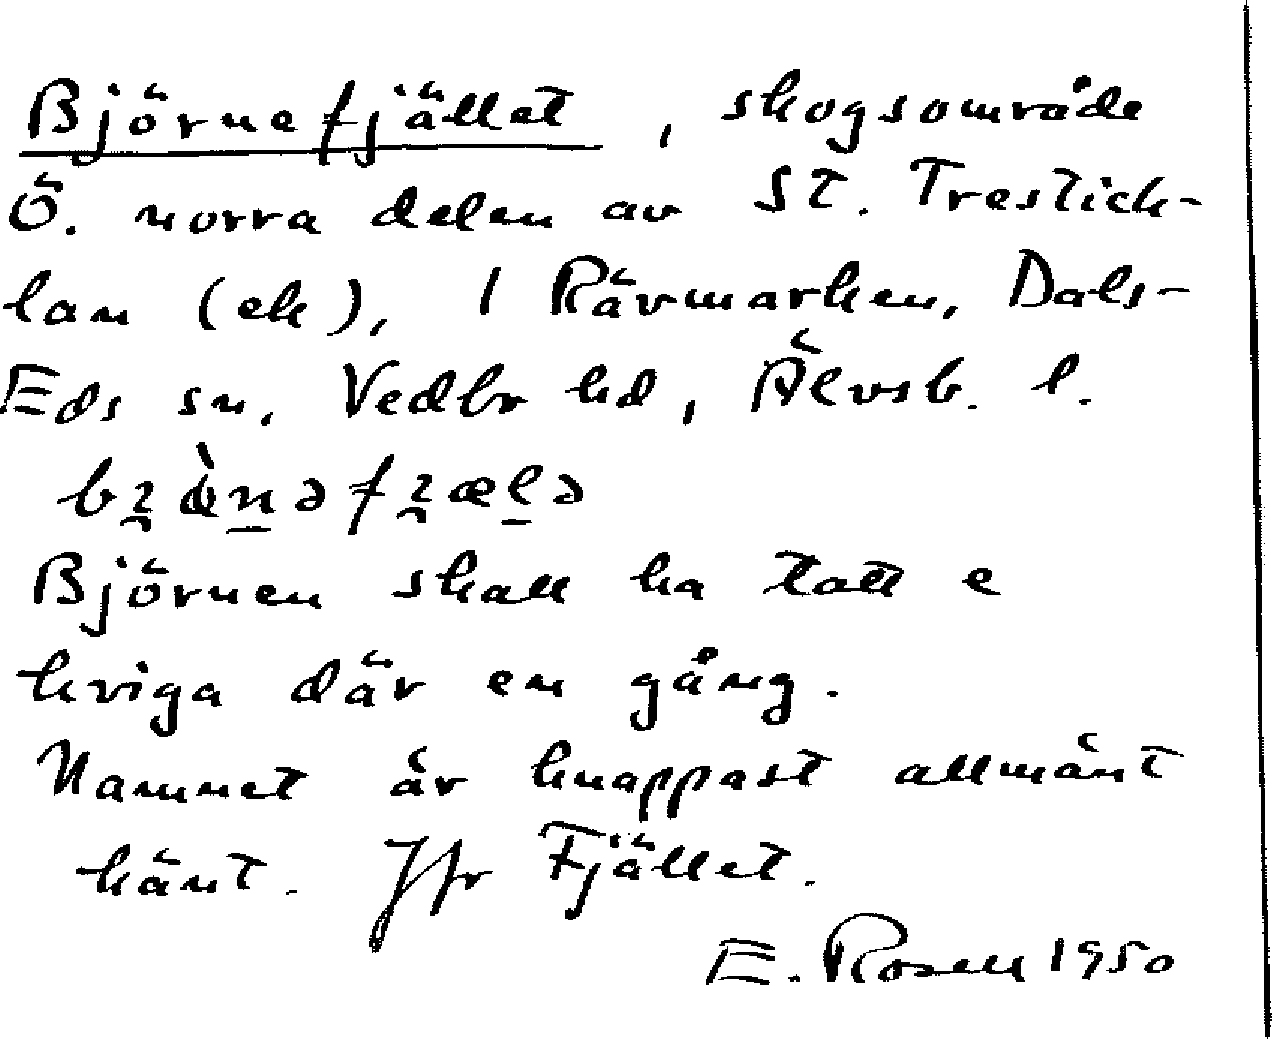 Björnefjället, skogsområde
Ö. norra delen av St. Trestick-
lan (ek), I Rävmarken, Dals-
Eds sn, Vedbo hd, Älvsb. l.
Björnen skall ha tatt e
kviga där en gång.
Namnet är knappast allmänt
känt. Jfr Fjället.
E. Rosell 1950